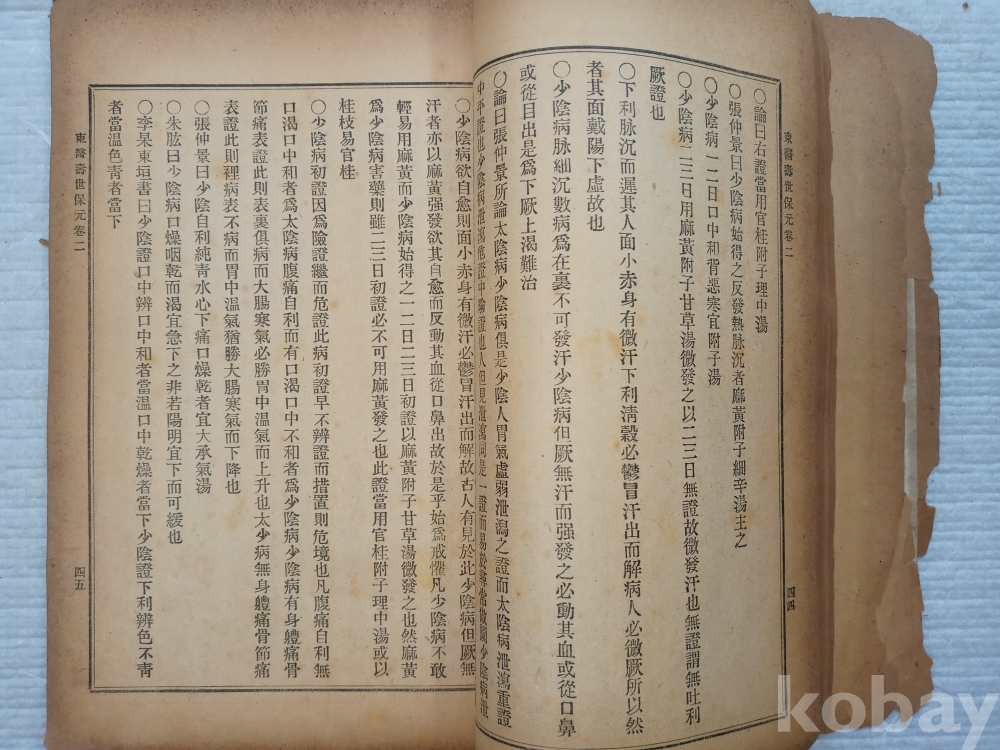 東醫壽世保元卷二
四四
○論曰右證當用官桂附子理中湯
○張仲景曰少陰病始得之反發熱脉沉者麻黃附子細辛湯主之
○少陰病一二日口中和背惡寒宜附子湯
○少陰病二三日用麻黃附子甘草湯微發之以二三日無證故微發汗也無證謂無吐利
厥證也
○下利脉沉而遲其人面小赤身有微汗下利淸穀必鬱冒汗出而解病人必微厥所以然
者其面戴陽下虛故也
○少陰病脉細沉數病爲在裏不可發汗少陰病但厥無汗而强發之必動其血或從口鼻
或從目出是爲下厥上渴難治
○論曰張仲景所論太陰病少陰病俱是少陰人胃氣虛弱泄瀉之證而太陰病泄瀉重證
中平證也少陰病泄瀉危證中險證也人但見泄瀉同是一證而易於尋常做圖少陰病泄
○少陰病欲自愈則面小赤身有微汗必鬱冒汗出而解故古人有見於此少陰病但厥無
汗者亦以麻黃强發欲其自愈而反動其血從口鼻出故於是乎始爲戒懼凡少陰病不敢
輕易用麻黃而少陰病始得之一二日二三日初證以麻黃附子甘草湯微發之也然麻黃
爲少陰病害藥則雖二三日初證必不可用麻黃發之也此證當用官桂附子理中湯或以
桂枝易官桂
○少陰病初證因爲險證繼而危證此病初證早不辨證而措置則危境也凡腹痛自利無
口渴口中和者爲太陰病腹痛自利而有口渴口中不和者爲少陰病少陰病有身軆痛骨
節痛表證此則表裏俱病而大腸寒氣必勝胃中溫氣而上升也太少病無身軆痛骨節痛
表證此則裡病表不病而胃中溫氣猶勝大腸寒氣而下降也
○張仲景曰少陰自利純靑水心下痛口燥乾者宜大承氣湯
○朱肱曰少陰病口燥咽乾而渴宜急下之非若陽明宜下而可緩也
○李杲東垣書曰少陰證口中辨口中和者當溫口中乾燥者當下少陰證下利辨色不靑
者當溫色靑者當下
東醫壽世保元卷二
四五
kobay